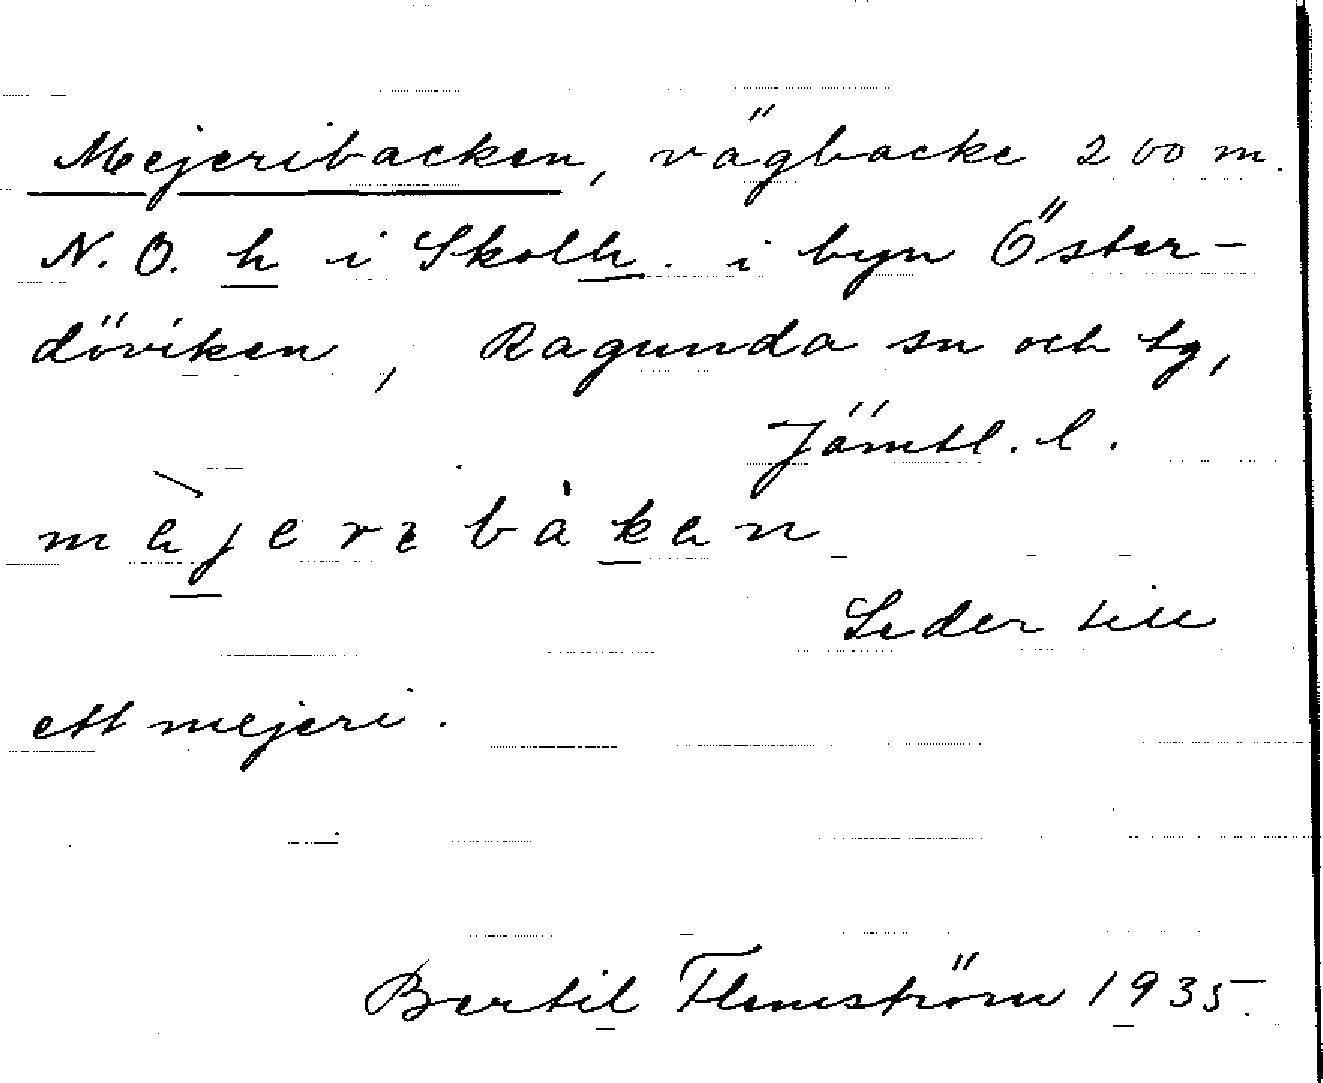 Mejeribacken, vägbacke 200 m.
N.O. h i Skolh. i byn Öster-
döviken, Ragunda sn och tg,
Jämtl. l.
mèjeribàken
Leder till
ett mejeri.
Bertil Flemström 1935.